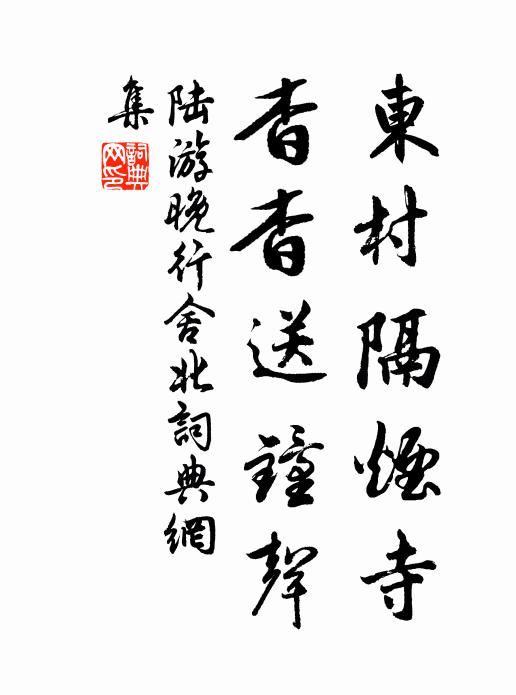 東村隔煙寺
杳杳送鐘聲
陸游晚行舍北詞典網
集
詞典网印